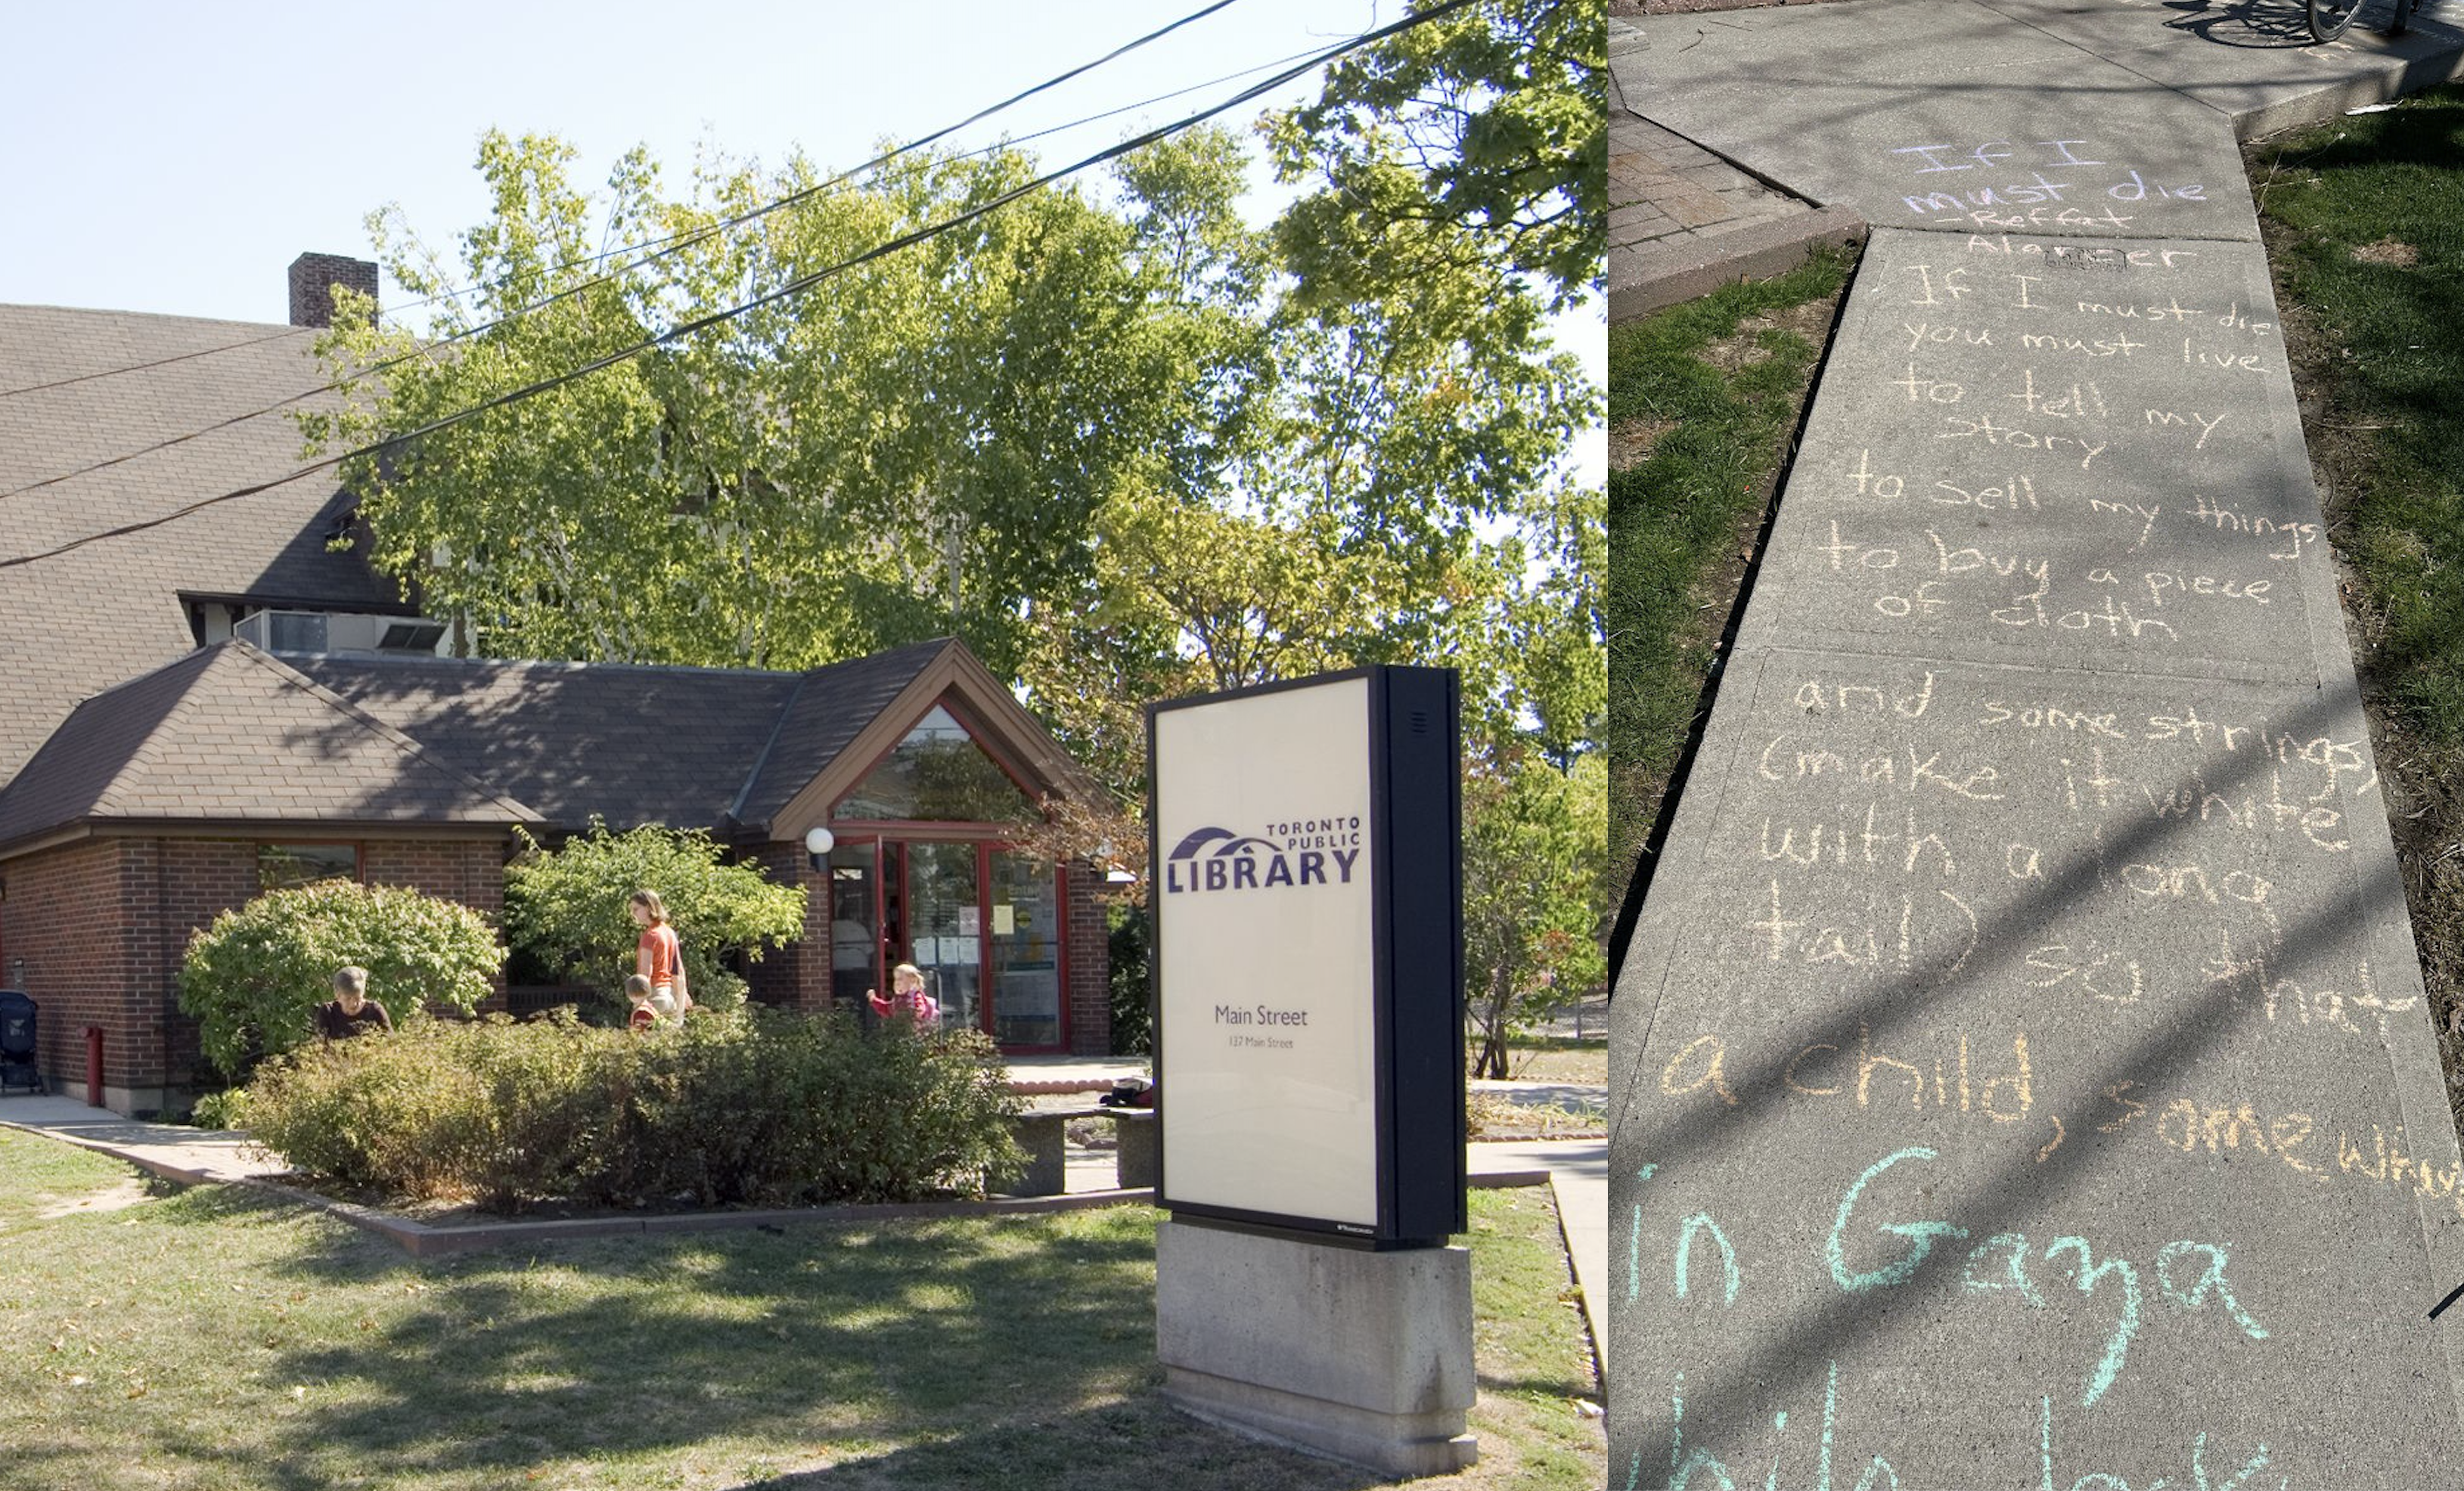 TORONTO
PUBLIC
LIBRARY
Main Street
137 Main Street
If I
must die
-Reffat
Alareer
If I must die
you must live
to tell my
story
to sell my things
to buy a piece
of cloth
and some strings,
(make it white
with a long
tail) so that
a child, somewhere
in Gaza
while look